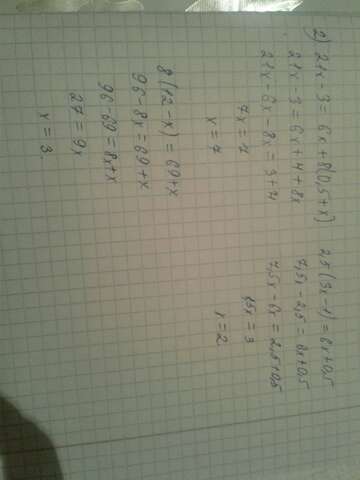 2) 21x - 3 = 6x + 8(0,5+x)
21x - 3 = 6x + 4 + 8x
21x - 6x - 8x = 3 + 4
7x = 7
x = 7
8(12-x) = 69+x
96-8x = 69+x
96-69 = 8x+x
27 = 9x
x = 3.
2,5(3x-1) = 6x+0,5
7,5x - 2,5 = 6x+0,5
7,5x - 6x = 2,5+0,5
1,5x = 3
x = 2